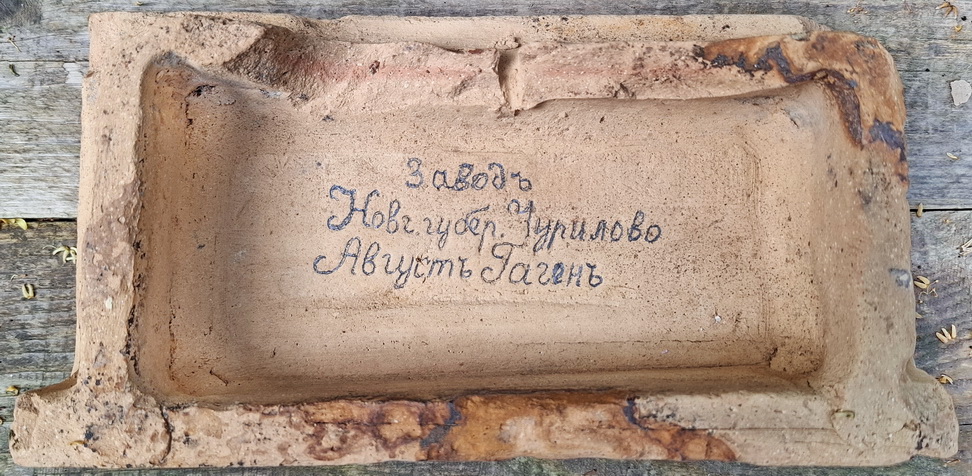 Заводъ
Новг. губер. Чурилово
Августъ Гагенъ